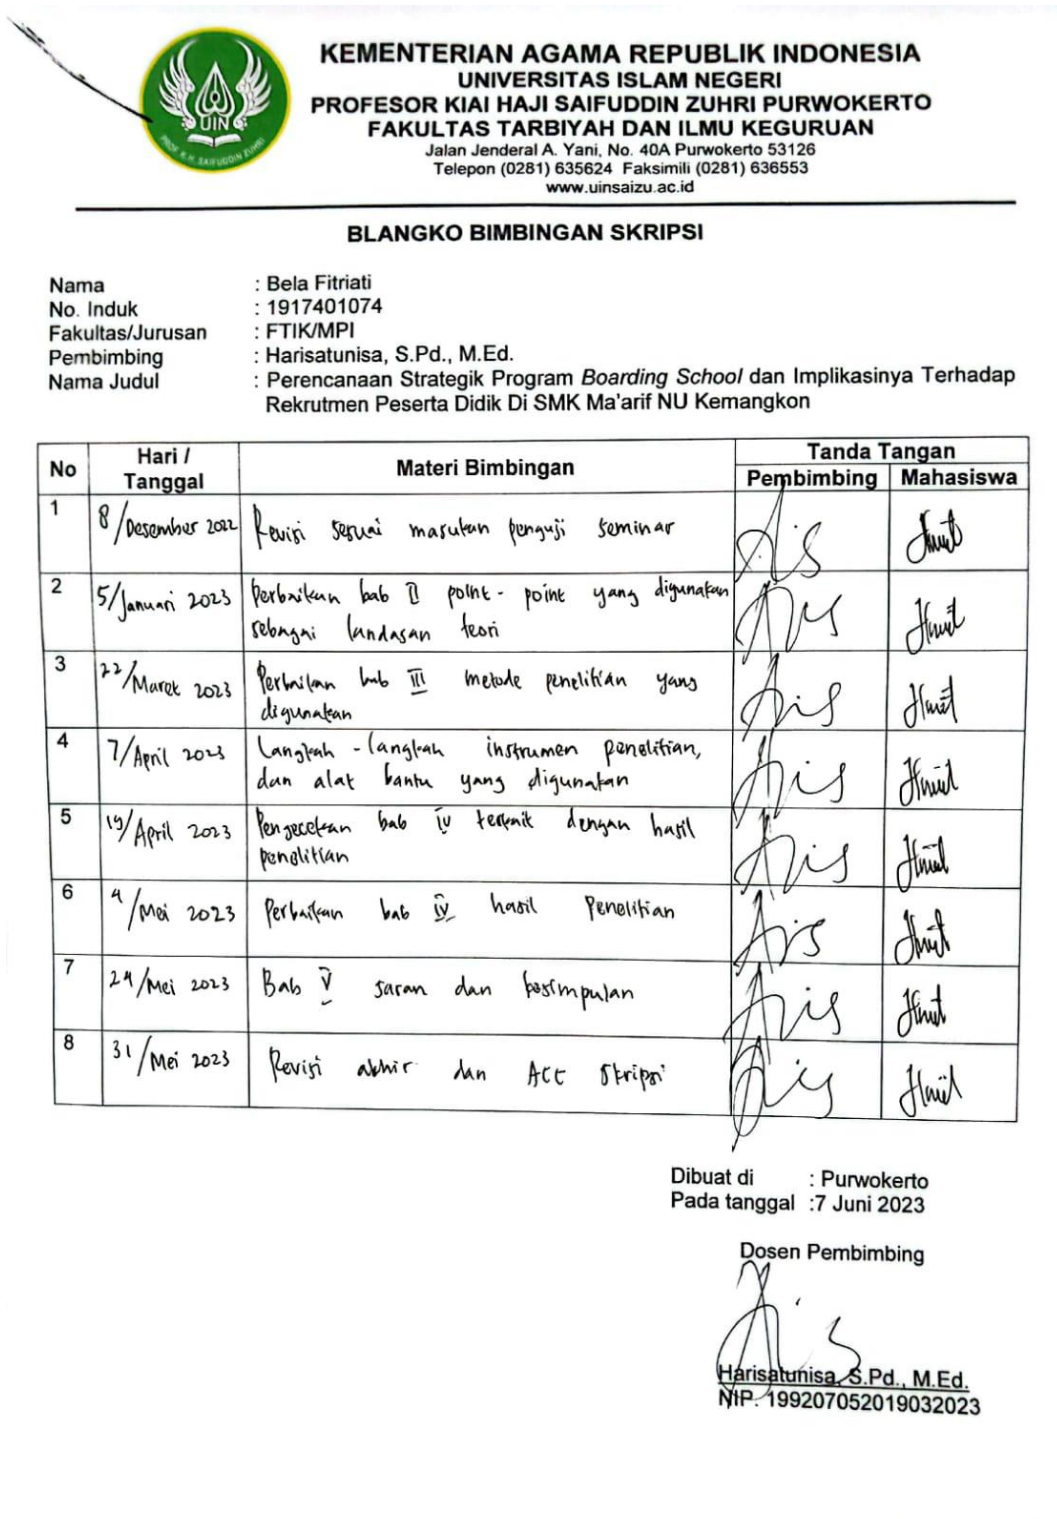 KEMENTERIAN AGAMA REPUBLIK INDONESIA
UNIVERSITAS ISLAM NEGERI
PROFESOR KIAI HAJI SAIFUDDIN ZUHRI PURWOKERTO
FAKULTAS TARBIYAH DAN ILMU KEGURUAN
Jalan Jenderal A. Yani, No. 40A Purwokerto 53126
Telepon (0281) 635624 Faksimili (0281) 636553
www.uinsaizu.ac.id
UIN
PROF. K.H. SAIFUDDIN ZUHRI
BLANGKO BIMBINGAN SKRIPSI
Nama : Bela Fitriati
No. Induk : 1917401074
Fakultas/Jurusan : FTIK/MPI
Pembimbing : Harisatunisa, S.Pd., M.Ed.
Nama Judul : Perencanaan Strategik Program Boarding School dan Implikasinya Terhadap
Rekrutmen Peserta Didik Di SMK Ma'arif NU Kemangkon
No Hari / Tanggal Materi Bimbingan Tanda Tangan
Pembimbing Mahasiswa
1 8/Desember 2022 Revisi sesuai masukan penguji seminar
2 5/Januari 2023 Perbaikan bab II point-point yang digunakan
sebagai landasan teori
3 22/Maret 2023 Perbaikan bab III metode penelitian yang
digunakan
4 7/April 2023 Langkah-langkah instrumen penelitian,
dan alat bantu yang digunakan
5 19/April 2023 Pengecekan bab IV terkait dengan hasil
penelitian
6 4/Mei 2023 Perbaikan bab IV hasil Penelitian
7 24/Mei 2023 Bab V saran dan kesimpulan
8 31/Mei 2023 Revisi akhir dan ACC Skripsi
Dibuat di : Purwokerto
Pada tanggal :7 Juni 2023
Dosen Pembimbing
Harisatunisa, S.Pd., M.Ed.
NIP. 199207052019032023